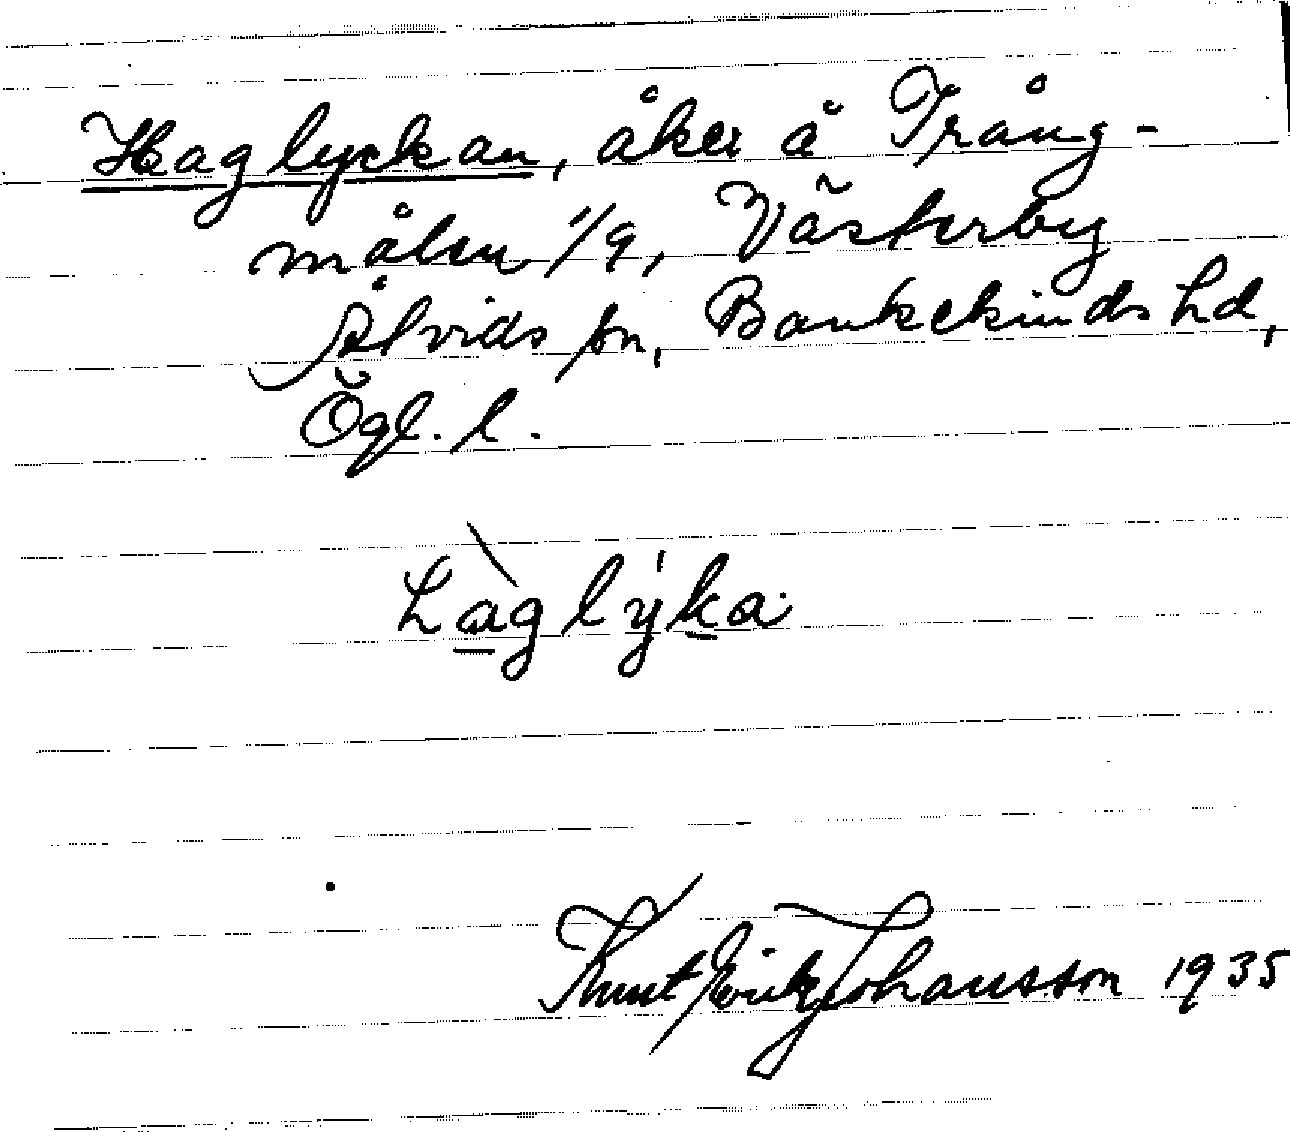 Haglyckan, åker å Trång-
målen 1/9, Västerby
Åtvids sn, Bankekinds hd,
Ögl. l.
hàglýka
Knut Erik Johansson 1935